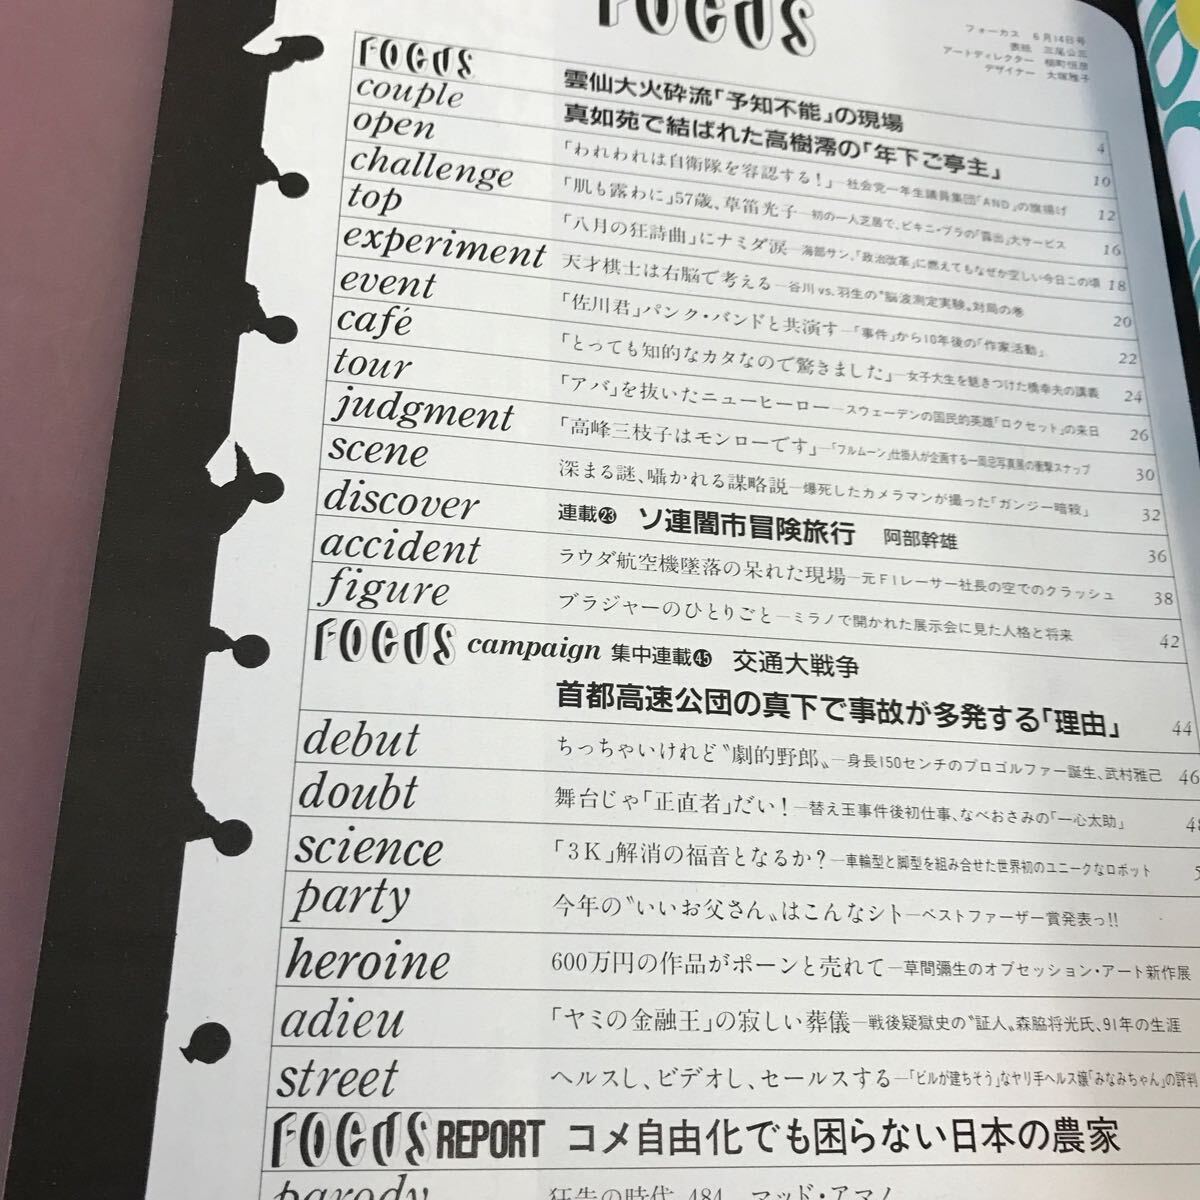 FOCUS
フォーカス 6月14日号
表紙 三尾公三
アートディレクター
デザイナー 大塚雅子
FOCUS 雲仙大火砕流「予知不能」の現場 4
couple 真如苑で結ばれた高樹澪の「年下ご亭主」 10
open 「われわれは自衛隊を容認する!」―社会党一年生議員集団「AND」の旗揚げ 12
challenge 「肌も露わに」57歳、草笛光子―初の一人芝居で、ビキニ・ブラの「露出」大サービス 16
top 「八月の狂詩曲」にナミダ涙―海部サン、「政治改革」に燃えてもなぜか空しい今日この頃 18
experiment 天才棋士は右脳で考える―谷川vs.羽生の〝脳波測定実験〟対局の巻 20
event 「佐川君」パンク・バンドと共演す―「事件」から10年後の「作家活動」 22
café 「とっても知的なカタなので驚きました」―女子大生を魅きつけた橋幸夫の講義 24
tour 「アバ」を抜いたニューヒーロー―スウェーデンの国民的英雄「ロクセット」の来日 26
judgment 「高峰三枝子はモンローです」―「フルムーン」仕掛人が企画する一周忌写真展の衝撃スナップ 30
scene 深まる謎、囁かれる謀略説―爆死したカメラマンが撮った「ガンジー暗殺」 32
discover 連載㉓ ソ連闇市冒険旅行 阿部幹雄 36
accident ラウダ航空機墜落の呆れた現場―元F1レーサー社長の空でのクラッシュ 38
figure ブラジャーのひとりごと―ミラノで開かれた展示会に見た人格と将来 42
FOCUS campaign 集中連載㊺ 交通大戦争
首都高速公団の真下で事故が多発する「理由」 44
debut ちっちゃいけれど〝劇的野郎〟―身長150センチのプロゴルファー誕生、武村雅己 46
doubt 舞台じゃ「正直者」だい!―替え玉事件後初仕事、なべおさみの「一心太助」 48
science 「3K」解消の福音となるか?―車輪型と脚型を組み合せた世界初のユニークなロボット 5
party 今年の〝いいお父さん〟はこんなシト―ベストファーザー賞発表っ!!
heroine 600万円の作品がポーンと売れて―草間彌生のオブセッション・アート新作展
adieu 「ヤミの金融王」の寂しい葬儀―戦後疑獄史の〝証人〟森脇将光氏、91年の生涯
street ヘルスし、ビデオし、セールスする―「ビルが建ちそう」なヤリ手ヘルス嬢「みなみちゃん」の評判
FOCUS REPORT コメ自由化でも困らない日本の農家
parody 狂告の時代 484 マッド・アマノ